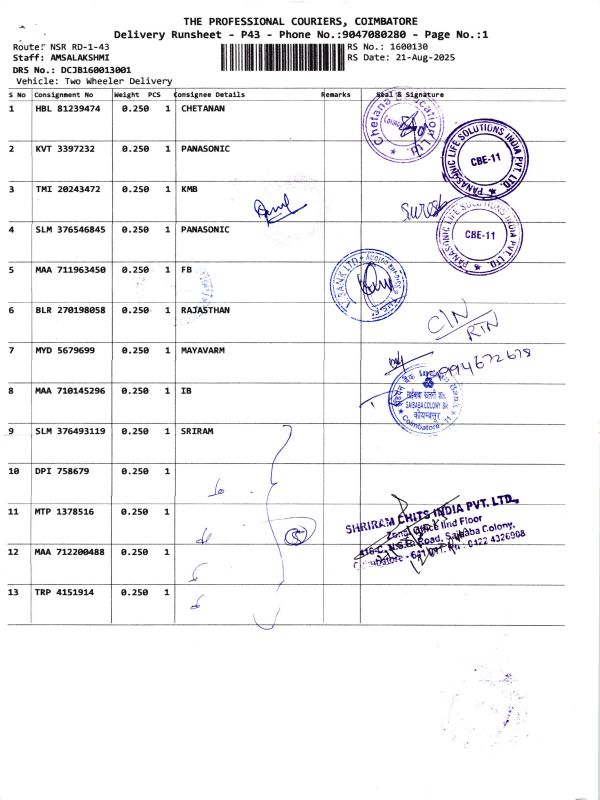 THE PROFESSIONAL COURIERS, COIMBATORE
Delivery Runsheet - P43 - Phone No.:9047080280 - Page No.:1
Route: NSR RD-1-43 RS No.: 1600130
Staff: AMSALAKSHMI RS Date: 21-Aug-2025
DRS No.: DCJB160013001
Vehicle: Two Wheeler Delivery
S No Consignment No Weight PCS Consignee Details Remarks Seal & Signature
1 HBL 81239474 0.250 1 CHETANAN
2 KVT 3397232 0.250 1 PANASONIC
PANASONIC LIFE SOLUTIONS INDIA PVT. LTD.
CBE-11
3 TMI 20243472 0.250 1 KMB
Suresh
4 SLM 376546845 0.250 1 PANASONIC
PANASONIC LIFE SOLUTIONS INDIA PVT. LTD.
CBE-11
5 MAA 711963450 0.250 1 FB
6 BLR 270198058 0.250 1 RAJASTHAN
C/N
RTN
7 MYD 5679699 0.250 1 MAYAVARM
8 MAA 710145296 0.250 1 IB
SAIBABA COLONY BR
कोयम्बत्तूर
Coimbatore - 11
9 SLM 376493119 0.250 1 SRIRAM
10 DPI 758679 0.250 1
11 MTP 1378516 0.250 1
5
SHRIRAM CHITS INDIA PVT. LTD.,
Zonal Office IInd Floor
Road, Saibaba Colony,
0422 4326908
12 MAA 712200488 0.250 1
13 TRP 4151914 0.250 1